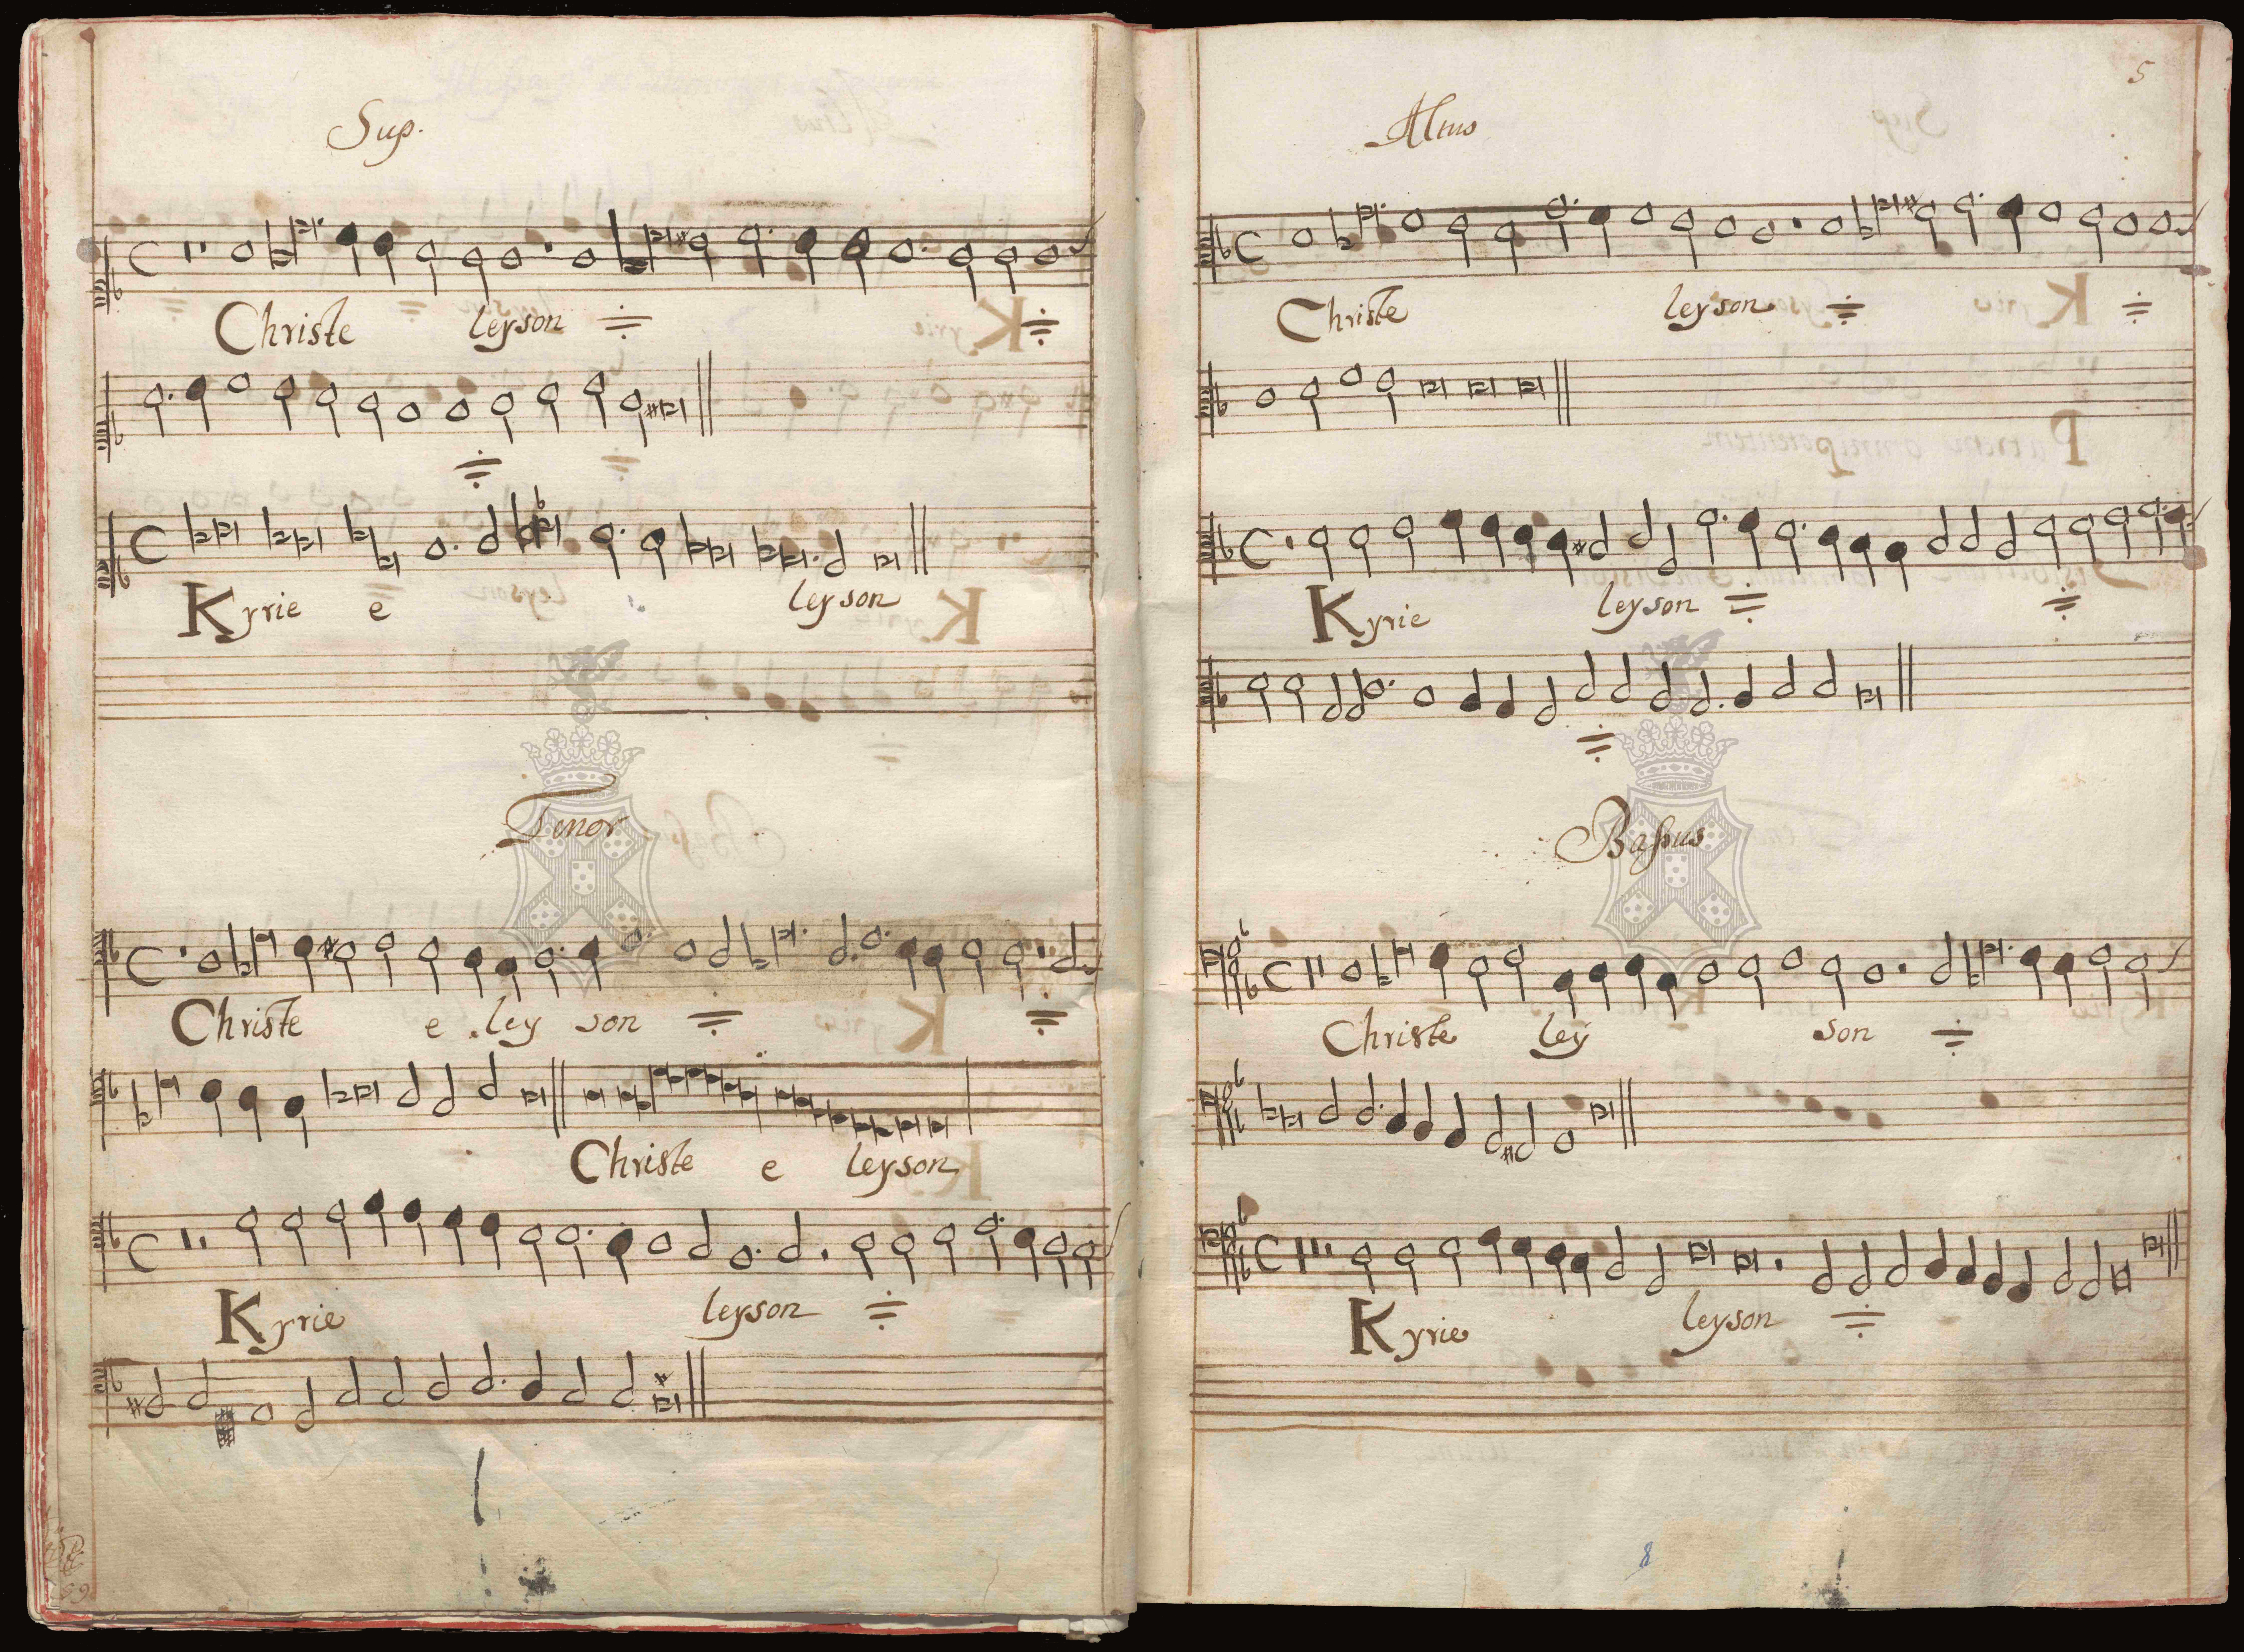 Sup.
Christe leyson
Kyrie e leyson
Tenor
Christe e ley son
Christe e leyson
Kyrie leyson
5
Altus
Christe leyson
Kyrie leyson
Bassus
Christe ley son
Kyrie leyson
8